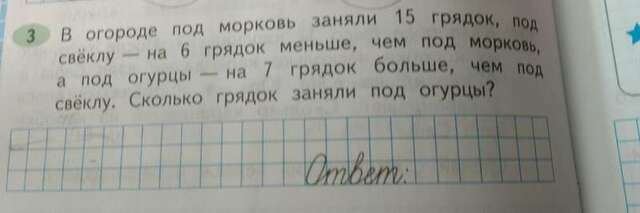 3 В огороде под морковь заняли 15 грядок, под
свёклу — на 6 грядок меньше, чем под морковь,
а под огурцы — на 7 грядок больше, чем под
свёклу. Сколько грядок заняли под огурцы?
Ответ: